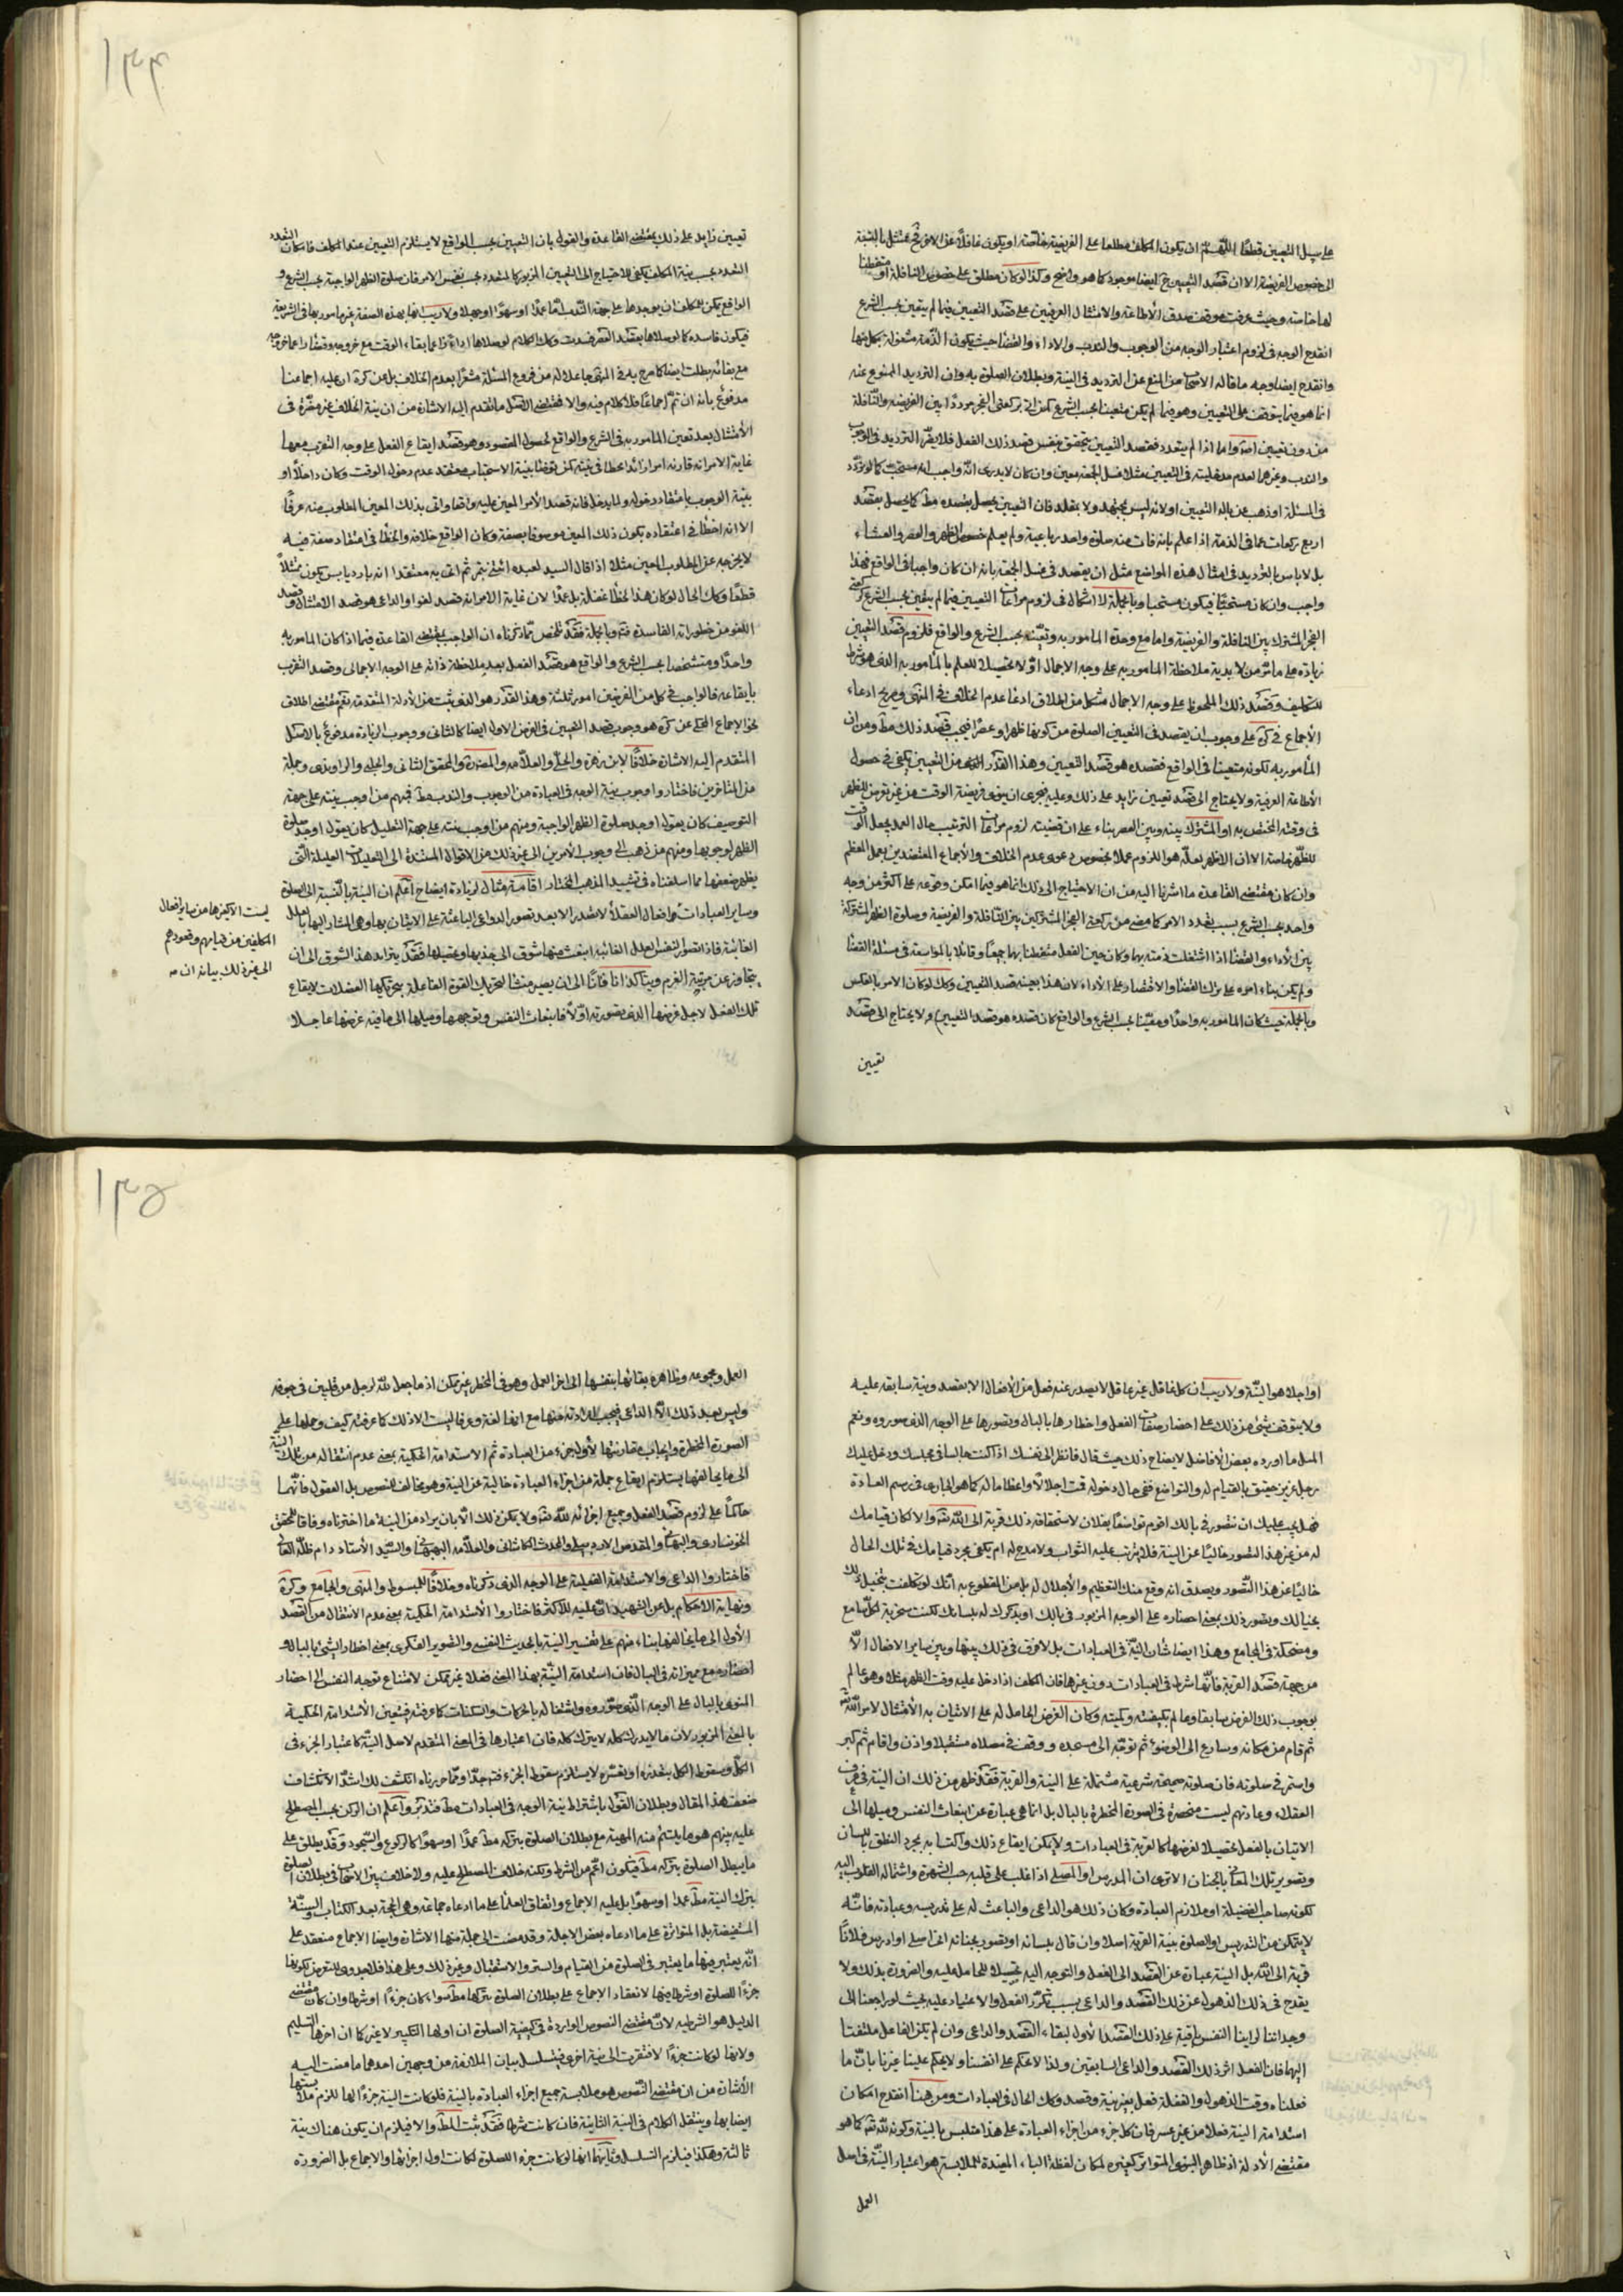 على سبيل التعيين قطعًا اللهم الا ان يكون المكلف مطلعا على الفريضة خاصة او يكون غافلا عن الاخرى
الى خصوص الفريضة الا ان قصد التعيين ح ايضا موجود كما هو واضح وكذا لو كان مطلق على خصوص النافلة او متفطنا
لها خاصة وحيث عرفت توقف صدق الاطاعة والامتثال العرفيين على قصد التعيين فيما لم يتعين بحسب الشرع
انقدح الوجه فى لزوم اعتبار الوجه من الوجوب والندب والاداء والقضا حيث يكون الذمة مشغولة بكل منها
وانقدح ايضا وجه ما قاله الاصحاب من المنع عن الترديد فى النية وبطلان الصلوة به وان الترديد الممنوع عنه
انما هو فيما يتوقف على التعيين وهو فيما لم يكن متعينا بحسب الشرع كمن اتى بركعتى الفجر مرددًا بين الفريضة والنافلة
من دون تعيين اصلا واما اذا لم يتعدد فقصد التعيين يتحقق بنفس قصد ذلك الفعل فلا يضر الترديد فى الوجوب
والندب وغيرهما لعدم مدخليته فى التعيين مثلا غسل الجمعة معين وان كان لا يدرى انه واجب او مستحب كما لو تردد
فى المسئلة او ذهب عن باله التعيين او لانه ليس بمجتهد ولا بمقلد فان التعيين يحصل بقصده مط كما يحصل بقصد
اربع ركعات عما فى الذمة اذا علم بانه فات منه صلوة واحدة رباعية ولم يعلم خصوص الظهر والعصر والعشاء
بل لا باس بالترديد فى امثال هذه المواضع مثل ان يقصد فى غسل الجمعة بانه ان كان واجبا فى الواقع فهذا
واجب وان كان مستحبا فيكون مستحبا وبالجملة لا اشكال فى لزوم مراعات التعيين فيما لم يتعين بحسب الشرع كركعتى
الفجر المشترك بين النافلة والفريضة واما مع وحدة المامور به وتعينه بحسب الشرع والواقع فلزوم قصد التعيين
زيادة على ما مر من لابدية ملاحظة المامور به على وجه الاجمال اولا تحصيلا للعلم بالمأمور به الذى هو شرط
للتكليف وقصد ذلك الملحوظ على وجه الاجمال مشكل من اطلاق ادعا عدم الخلاف فى المنتهى وصريح ادعاء
الاجماع فى كرة على وجوب ان يقصد فى التعيين الصلوة من كونها ظهرا او عصرا فيجب قصد ذلك مط ومن ان
المأمور به لكونه متعينا فى الواقع فقصده هو قصد التعيين وهذا القدر من التعيين يكفى فى حصول
الاطاعة العرفية ولا يحتاج الى قصد تعيين زايد على ذلك وعليه فيجزى ان ينوى فريضة الوقت من غير تعرض للظهر
فى وقته المختص به او المشترك بينه وبين العصر بناء على ان قضية لزوم مراعات الترتيب حال العمد يجعل الوقت
للظهر خاصة الا ان الاظهر لعله هو اللزوم عملا بخصوص دعوى عدم الخلاف والاجماع المعتضدين بعمل المعظم
وان كان مقتضى القاعدة ما اشرنا اليه من ان الاحتياج الى ذلك انما هو فيما امكن وقوعه على اكثر من وجه
واحد بحسب الشرع بسبب تعدد الامر كما مضى من ركعتى الفجر المشتركين بين النافلة والفريضة وصلوة الظهر المشتركة
بين الاداء والقضا اذا اشتغلت ذمته بهما وكان حين الفعل متفطنا بهما جميعًا وقائلا بالمواسعة فى مسئلة القضا
ولم يكن بناء امره على ترك القضا والاقتصار على الاداء لان هذا بعينه قصد التعيين وكك لو كان الامر بالعكس
وبالجملة حيث كان المامور به واحدًا ومعينا بحسب الشرع والواقع كان قصده هو قصد التعيين ولا يحتاج الى قصد
تعيين
۱۳۴
تعيين زايد على ذلك بمقتضى القاعدة والقول بان التعيين بحسب الواقع لا يستلزم التعيين عند المكلف فامكان التعدد
التعدد بحسب نية المكلف يكفى للاحتياج الى التعيين المزبور كالمتعدد بحسب نفس الامر فان صلوة الظهر الواجبة بحسب الشرع و
الواقع يمكن للمكلف ان يوجدها على جهة الندب اما عمدًا او سهوًا او جهلا ولا ريب انها بهذه الصفة غير مامور بها فى الشريعة
فيكون فاسدة كما لو صلاها بقصد العصر فسدت وكك الكلام لو صلاها اداءً زاعما بقاء الوقت مع خروجه وقضاءً زاعما خروجه
مع بقائه بطلت ايضا كما صرح به فى المنتهى جاعلا له من فروع المسئلة مشعرا بعدم الخلاف بل عن كرة ان عليه اجماعنا
مدفوع بانه ان تم اجماعًا فلا كلام فيه والا فمقتضى الاصل ما تقدم اليه الاشارة من ان نية الخلاف غير مضرة فى
الامتثال بعد تعين المأمور به فى الشرع والواقع لحصول المقصود وهو قصد ايقاع الفعل على وجه التقرب معها
غاية الامر انه قارنه امرا زائدا خطا فى نيته كمن توضا بنية الاستحباب معتقد عدم دخول الوقت وكان داخلا او
بنية الوجوب باعتقاد دخوله ولما يدخل فانه قصد الامر المعين عليه واقعا واتى بذلك المعين المطلوب منه عرفًا
الا انه اخطأ فى اعتقاده بكون ذلك المعين موصوفا بصفة وكان الواقع خلافه والخطأ فى اعتقاد صفة فيه
لا يخرجه عن المطلوب المعين مثلا اذا قال السيد لعبده ائتنى بتمر ثم اتى به معتقدا انه بارد يابس يكون ممتثلاً
قطعًا وكك الحال لو كان هذا الخطأ غفلة بل عمدًا لان غاية الامر انه قصد لغوا والداعى هو قصد الامتثال وقصد
اللغو من خطوراته الفاسدة فتد وبالجملة فقد تلخص مما ذكرناه ان الواجب بمقتضى القاعدة فيما اذا كان المامور به
واحدًا ومتشخصا بحسب الشرع والواقع هو قصد الفعل بعد ملاحظة ذاته على الوجه الاجمالى وقصد التقرب
بايقاعه فالواجب فى كل من الفرضين امور ثلثة وهذا القدر هو الذى يثبت من الادلة المتقدمة نعم مقتضى اطلاق
نحو الاجماع المحكى عن كرة هو وجوب قصد التعيين فى الفرض الاول ايضا كالثانى ووجوب الزيادة مدفوع بالاصل
المتقدم اليه الاشارة خلافًا لابن زهرة والحلى والعلامه والمحقق الثانى والحلبى والراوندى وجملة
من المتاخرين فاختاروا وجوب نية الوجه فى العبادة من الوجوب والندب مط فمنهم من اوجب نيته على جهة
التوصيف كان يقول اوجد صلوة الظهر الواجبة ومنهم من اوجب نيته على جهة التعليل كان يقول اوجد صلوة
الظهر لوجوبها ومنهم من ذهب الى وجوب الامرين الى غير ذلك من الاقوال المستندة الى التعليلات العليلة التى
يظهر ضعفها مما اسلفناه فى تشييد المذهب المختار اقامة مثال لزيادة ايضاح اعلم ان النية بالنسبة الى الصلوة
وساير العبادات
ليست الا كغيرها من ساير افعال
المكلفين من قيامهم وقعودهم
الى غير ذلك بيانه ان مه
افعال العقلاء لا تصدر الا بعد تصور الدواعى الباعثة على الاتيان بها وهى المشار اليها بالعلل
الغائية فاذا تصور النفس العلل الغائية انبعث منها شوق الى جذبها وتحصيلها فقد يتزايد هذا الشوق الى ان
يتجاوز عن مرتبة العزم ويتأكد انا فانًا الى ان يصير منشا لتحريك القوة الفاعلة بتحريكها العضلات لايقاع
تلك الفعل لاجل غرضها الذى تصورته اولا فانبعاث النفس وتوجهها وميلها الى ما فيه غرضها عاجلا
او اجلا هو النية ولا ريب ان كل عاقل غير غافل لا يصدر عنه فعل من الافعال الا بقصد ونية سابقة عليه
ولا يتوقف شئ من ذلك على احضار صفات الفعل واخطارها بالبال وتصورها على الوجه الذى صوروه ونعم
المثل ما اورده بعض الافاضل لايضاح ذلك حيث قال فانظر الى نفسك اذا كنت جالسا فى مجلسك ودخل عليك
رجل عزيز حقيق بالقيام له والتواضع ففى حال دخوله قمت اجلالا واعظاما له كما هو الجارى فى رسم العادة
فهل يجب عليك ان تتصور فى بالك اقوم تواضعًا لفلان لاستحقاقه ذلك قربة الى الله تعه والا لكان قيامك
له من غير هذا التصور خاليًا عن النية فلا يترتب عليه الثواب ولا مدح له ام يكفى مجرد قيامك فى تلك الحال
خاليًا عن هذا التصور ويصدق انه وقع منك التعظيم والاجلال له بل من المقطوع به انك لو تكلفت تخيل ذلك
بخيالك وتصور ذلك بمعنى احضاره على الوجه المزبور فى بالك او بذكرك له بلسانك لكنت سخرية لكل سامع
ومضحكة فى المجامع وهذا ايضا شان النية فى العبادات بل لا فرق فى ذلك بينها وبين ساير الافعال الا
من جهة قصد القربة فانها شرط فى العبادات دون غيرها فان المكلف اذا دخل عليه وقت الظهر مثلا وهو عالم
بوجوب ذلك الفرض سابقا وعالم بكيفيته وكميته وكان الغرض الحامل له على الاتيان به الامتثال لامر الله تعه
ثم قام من مكانه وسارع الى الوضوء ثم توجه الى مسجده ووقف فى مصلاه مستقبلا واذن واقام ثم كبر
واستمر فى صلوته فان صلوته صحيحة شرعية مشتملة على النية والقربة فقد ظهر من ذلك ان النية فى عرف
العقلاء وعادتهم ليست منحصرة فى الصورة المخطرة بالبال بل انما هى عبارة عن انبعاث النفس وميلها الى
الاتيان بالفعل تحصيلا لغرضها كالقربة فى العبادات ولا يمكن ايقاع ذلك واكتسابه بمجرد النطق باللسان
وتصوير تلك المعانى بالجنان الا ترى ان المدرس او المصلى اذا غلب على قلبه حب الشهرة واشتمالة القلوب اليه
لكونه صاحب الفضيلة او ملازم العبادة وكان ذلك هو الداعى والباعث له على تدريسه وعبادته فانه
لا يتمكن من التدريس او الصلوة بنية القربة اصلا وان قال بلسانه او تصور بجنانه انى اصلى او ادرس فلانًا
قربة الى الله بل النية عبارة عن القصد الى الفعل والتوجه اليه تحصيلا للحامل عليه والضرورة بذلك ولا
يقدح فى ذلك الذهول عن ذلك القصد والداعى بسبب تكرر الفعل والاعتياد عليه بحيث لو راجعنا الى
وجداننا لراينا النفس باقية على ذلك القصد الاول لبقاء القصد والداعى وان لم يكن الفاعل ملتفتا
اليهما فان الفعل اثر ذلك القصد والداعى السابقين ولذا لا نحكم على انفسنا ولا يحكم علينا غيرنا بان ما
فعلناه وقت الذهول والغفلة فعل بغير نية وقصد وكك الحال فى العبادات ومن هنا انقدح امكان
استدامة النية فعلا من غير عسر فان كل جزء من اجزاء العبادة على هذا متلبس بالنية وكونه لله تعه كما هو
مقتضى الادلة اذ ظاهر النبوى المتواتر كغيره لمكان لفظة الباء المفيدة للملابسة هو اعتبار النية فى اصل
العمل
۱۳۵
العمل ومجموعه وظاهره بقائها بنفسها الى اخر العمل وهو فى المخطر غير ممكن اذ ما جعل الله لرجل من قلبين فى جوفه
وليس بعد ذلك الا الداعى فيجب ارادته منها مع انها لغة وعرفا ليست الا ذلك كما عرفته كيف وحملها على
الصورة المخطرة وايجاب مقارنتها لاول جزء من العبادة ثم الاستدامة الحكمية بمعنى عدم انتقاله من تلك النية
الى ما يخالفها يستلزم ايقاع جملة من اجزاء العبادة خالية عن النية وهو مخالف للنصوص بل العقول فانها
حاكمة على لزوم قصد الفعل وجميع اجزائه لله تعه ولا يمكن ذلك الا بان يراد من النية ما اخترناه وفاقا للمحقق
الخونسارى والبهائى والمقدس الاردبيلى والمحدث الكاشانى والعلامه البهبهانى والسيد الاستاد دام ظله العالى
فاختاروا الداعى والاستدامة الفعلية على الوجه الذى ذكرناه وخلافًا للمبسوط والمنتهى والجامع وكرة
ونهاية الاحكام بل عن الشهيد ان عليه الاكثر فاختاروا الاستدامة الحكمية بمعنى عدم الانتقال من القصد
الاول الى ما يخالفها بناء منهم على تفسير النية بالحديث النفسى والتصوير الفكرى بمعنى اخطار الشئ بالبال و
احضاره مع مميزاته فى البال فان استدامة النية بهذا المعنى فعلا غير ممكن لامتناع توجه النفس الى احضار
المنوى بالبال على الوجه الذى صوروه واشتغاله بالحركات والسكنات كما عرفته فيتعين الاستدامة الحكمية
بالمعنى المزبور لان ما لا يدرك كله لا يترك كله فان اعتبارها فى المعنى المتقدم لاصل النية كاعتبار الجزء فى
الكل وسقوط الكل بتعذره او تعسره لا يستلزم سقوط الجزء فتد جدًا ومما حررناه انكشف لك اشد الانكشاف
ضعف هذا المقال وبطلان القول باشتراط نية الوجه فى العبادات مط فتدبر واعلم ان الركن بحسب المصطلح
عليه بينهم هو ما يلتئم منه المهية مع بطلان الصلوة بتركه مط عمدًا او سهوًا كالركوع والسجود وقد يطلق على
ما يبطل الصلوة بتركه مط فيكون اعم من الشرط ولكنه خلاف المصطلح عليه ولا خلاف بين الاصحاب فى بطلان الصلوة
بترك النية مط عمدا او سهوًا بل عليه الاجماع واتفاق العلماء على ما ادعاه جماعة وهى الحجة بعد الكتاب والسنة
المستفيضة بل المتواترة على ما ادعاه بعض الاجلة وقد مضت الى جملة منها الاشارة وايضا الاجماع منعقد على
انه يعتبر فيها ما يعتبر فى الصلوة من القيام والستر والاستقبال وغير ذلك وعلى هذا فلا جدوى للتعرض لكونها
جزءًا للصلوة او شرطا فيها لانعقاد الاجماع على بطلان الصلوة بتركها مط سواء كان جزءًا او شرطا وان كان مقتضى
الدليل هو الشرطية لان مقتضى النصوص الواردة فى كيفية الصلوة ان اولها التكبير لا غير كما ان اخرها التسليم
ولانها لو كانت جزءًا لافتقرت الى نية اخرى فيتسلسل بيان الملازمة من وجهين احدهما ما مضت اليه
الاشارة من ان مقتضى النصوص هو ملابسة جميع اجزاء العبادة بالنية فلو كانت النية جزءًا لها للزم ملابستها
ايضا بها وينتقل الكلام فى النية الثانية فان كانت شرطا فقد ثبت المط والا فيلزم ان يكون هناك نية
ثالثة وهكذا فيلزم التسلسل وثانيهما انها لو كانت جزء للصلوة لكانت اول اجزائها والاجماع بل الضرورة